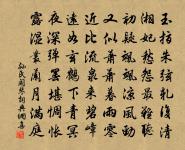 玉指朱絃軋復清
湘妃愁怨最難聽
初疑颯颯涼風勁
又似蕭蕭暮雨零
近比流泉來碧嶂
遠如玄鶴下青冥
夜深彈罷堪惆悵
露濕叢蘭月滿庭
孫氏聞琴詞典網書